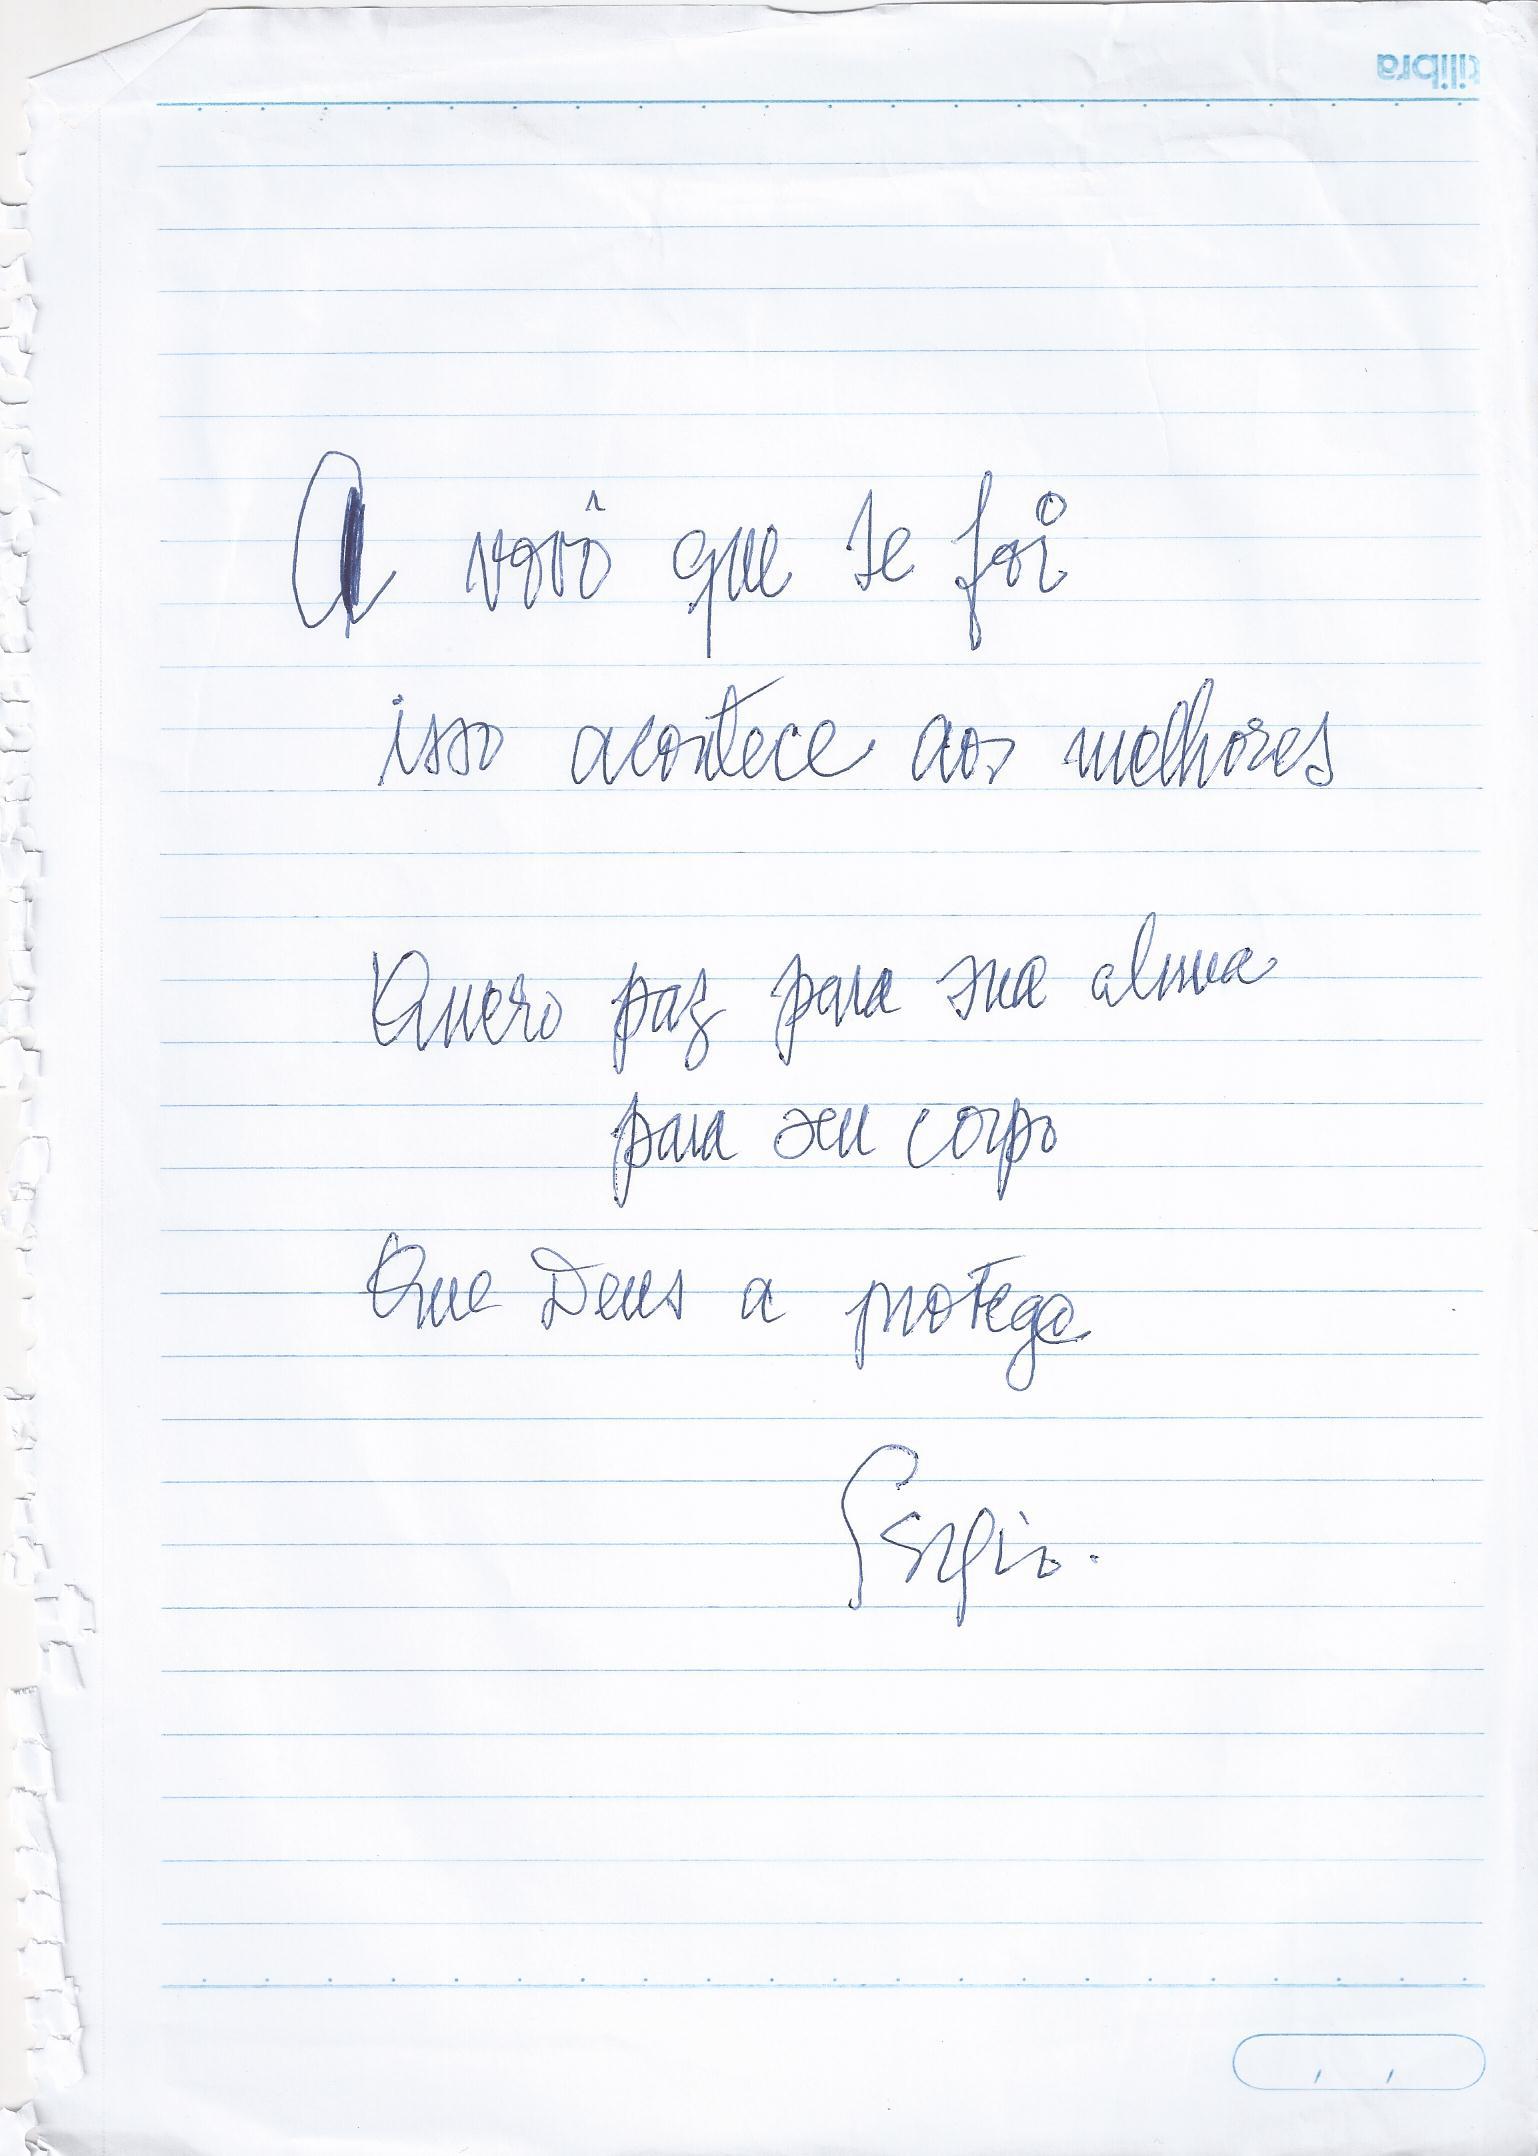 tilibra
A vovô que se foi
isso acontece aos melhores
Quero paz para sua alma
para seu corpo
Que Deus a protega
Sergio.